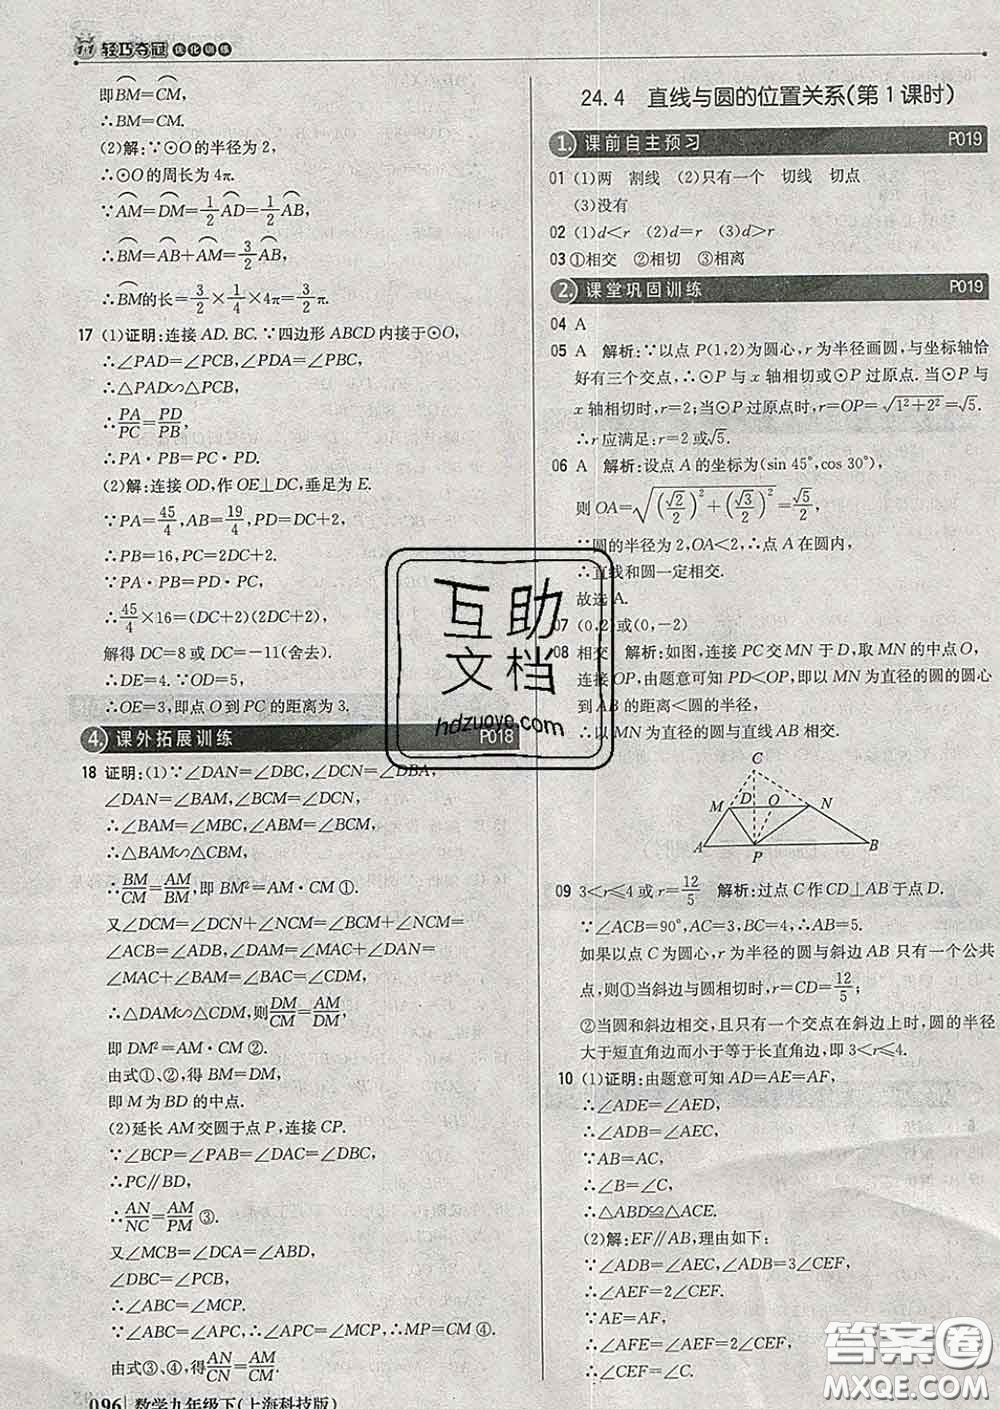 1+1 轻巧夺冠 优化训练
即BM=CM,
∴BM=CM.
(2)解:∵⊙O的半径为2,
∴⊙O的周长为4π.
∵AM=DM=1/2 AD=1/2 AB,
∴BM=AB+AM=3/2 AB,
∴BM的长=3/2×1/4×4π=3/2π.
17 (1)证明:连接AD.BC.∵四边形ABCD内接于⊙O,
∴∠PAD=∠PCB,∠PDA=∠PBC,
∴△PAD∽△PCB,
∴PA/PC=PD/PB,
∴PA·PB=PC·PD.
(2)解:连接OD,作OE⊥DC,垂足为E.
∵PA=45/4,AB=19/4,PD=DC+2,
∴PB=16,PC=2DC+2.
∵PA·PB=PD·PC,
∴45/4×16=(DC+2)(2DC+2),
解得DC=8或DC=-11(舍去).
∴DE=4.∵OD=5,
∴OE=3,即点O到PC的距离为3.
4. 课外拓展训练 P018
18 证明:(1)∵∠DAN=∠DBC,∠DCN=∠DBA,
∠DAN=∠BAM,∠BCM=∠DCN,
∴∠BAM=∠MBC,∠ABM=∠BCM,
∴△BAM∽△CBM,
∴BM/CM=AM/BM,即BM²=AM·CM ①.
又∠DCM=∠DCN+∠NCM=∠BCM+∠NCM=
∠ACB=∠ADB,∠DAM=∠MAC+∠DAN=
∠MAC+∠BAM=∠BAC=∠CDM,
∴△DAM∽△CDM,则DM/CM=AM/DM,
即DM²=AM·CM ②.
由式①、②,得BM=DM,
即M为BD的中点.
(2)延长AM交圆于点P,连接CP.
∵∠BCP=∠PAB=∠DAC=∠DBC,
∴PC∥BD,
∴AN/NC=AM/PM ③.
又∠MCB=∠DCA=∠ABD,
∠DBC=∠PCB,
∴∠ABC=∠MCP.
∵∠ABC=∠APC,∴∠MCP=∠APC,∴MP=CM ④.
由式③、④,得AN/CN=AM/CM.
096 数学九年级下(上海科技版)
24.4 直线与圆的位置关系(第1课时)
1. 课前自主预习 P019
01 (1)两 割线 (2)只有一个 切线 切点
(3)没有
02 (1)d<r (2)d=r (3)d>r
03 ①相交 ②相切 ③相离
2. 课堂巩固训练 P019
04 A
05 A 解析:∵以点P(1,2)为圆心,r为半径画圆,与坐标轴恰
好有三个交点,∴⊙P与x轴相切或⊙P过原点.当⊙P与
x轴相切时,r=2;当⊙P过原点时,r=OP=√(1²+2²)=√5.
∴r应满足:r=2或√5.
06 A 解析:设点A的坐标为(sin 45°,cos 30°),
则OA=√((√2/2)²+(√3/2)²)=√5/2,
∵圆的半径为2,OA<2,∴点A在圆内,
∴直线和圆一定相交.
故选A.
07 (0,2)或(0,-2)
08 相交 解析:如图,连接PC交MN于D,取MN的中点O,
连接OP,由题意可知PD<OP,即以MN为直径的圆的圆心
到AB的距离<圆的半径,
∴以MN为直径的圆与直线AB相交.
C
M D O N
A P B
09 3<r≤4或r=12/5 解析:过点C作CD⊥AB于点D.
∵∠ACB=90°,AC=3,BC=4,∴AB=5.
如果以点C为圆心,r为半径的圆与斜边AB只有一个公共
点,则①当斜边与圆相切时,r=CD=12/5;
②当圆和斜边相交,且只有一个交点在斜边上时,圆的半径
大于短直角边而小于等于长直角边,即3<r≤4.
10 (1)证明:由题意可知AD=AE=AF,
∴∠ADE=∠AED.
∵AB=AC,
∴∠B=∠C,
∴△ABD≌△ACE.
(2)解:EF∥AB,理由如下:
∵∠ADB=∠AEC,∠ADB=3∠CEF,
∴∠AEF=2∠CEF.
∵AE=AF,
∴∠AFE=∠AEF=2∠CEF,
∴∠C=∠CEF.
互助
文档
hdzuoye.com
答案圈
MXQE.COM